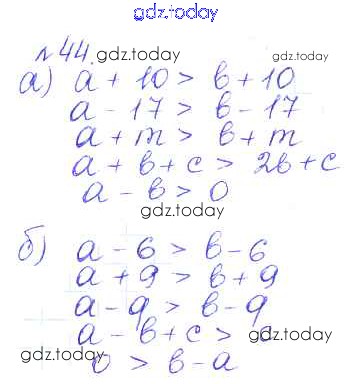 gdz.today
№44. gdz.today gdz.today
а) a + 10 > b + 10
a - 17 > b - 17
a + m > b + m
a + b + c > 2b + c
a - b > 0
gdz.today
б) a - 6 > b - 6
a + 9 > b + 9
a - 9 > b - 9
a - b + c >
gdz.today
gdz.today
0 > b - a